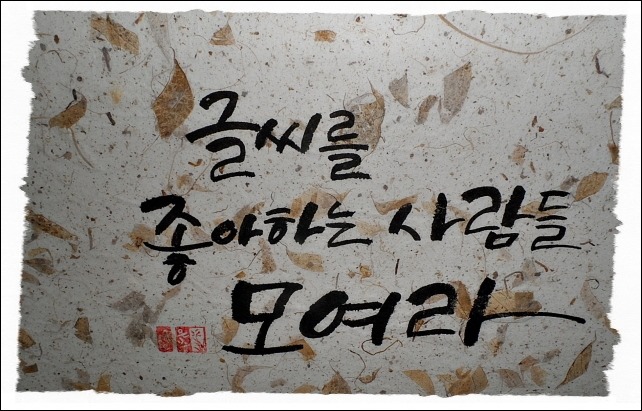 글씨를
좋아하는 사람들
모여라